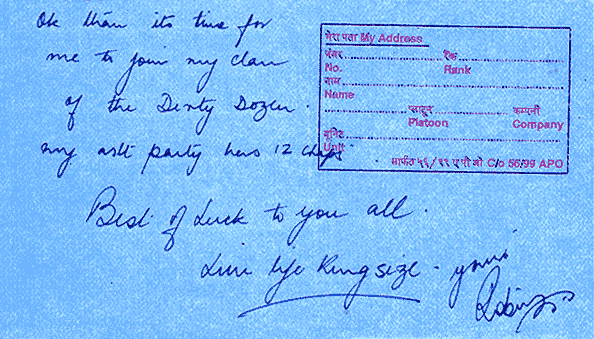 Ok than its time for
me to join my clan
of the Dirty Dozen.
my aslt party has 12 chaps
Best of Luck to you all.
Live life King size - yours
Robin
मेरा पता My Address
नंबर रैंक
No. Rank
नाम
Name
प्लाटून कम्पनी
Platoon Company
यूनिट
Unit
मार्फत ५६/९९ ए पी ओ C/o 56/99 APO